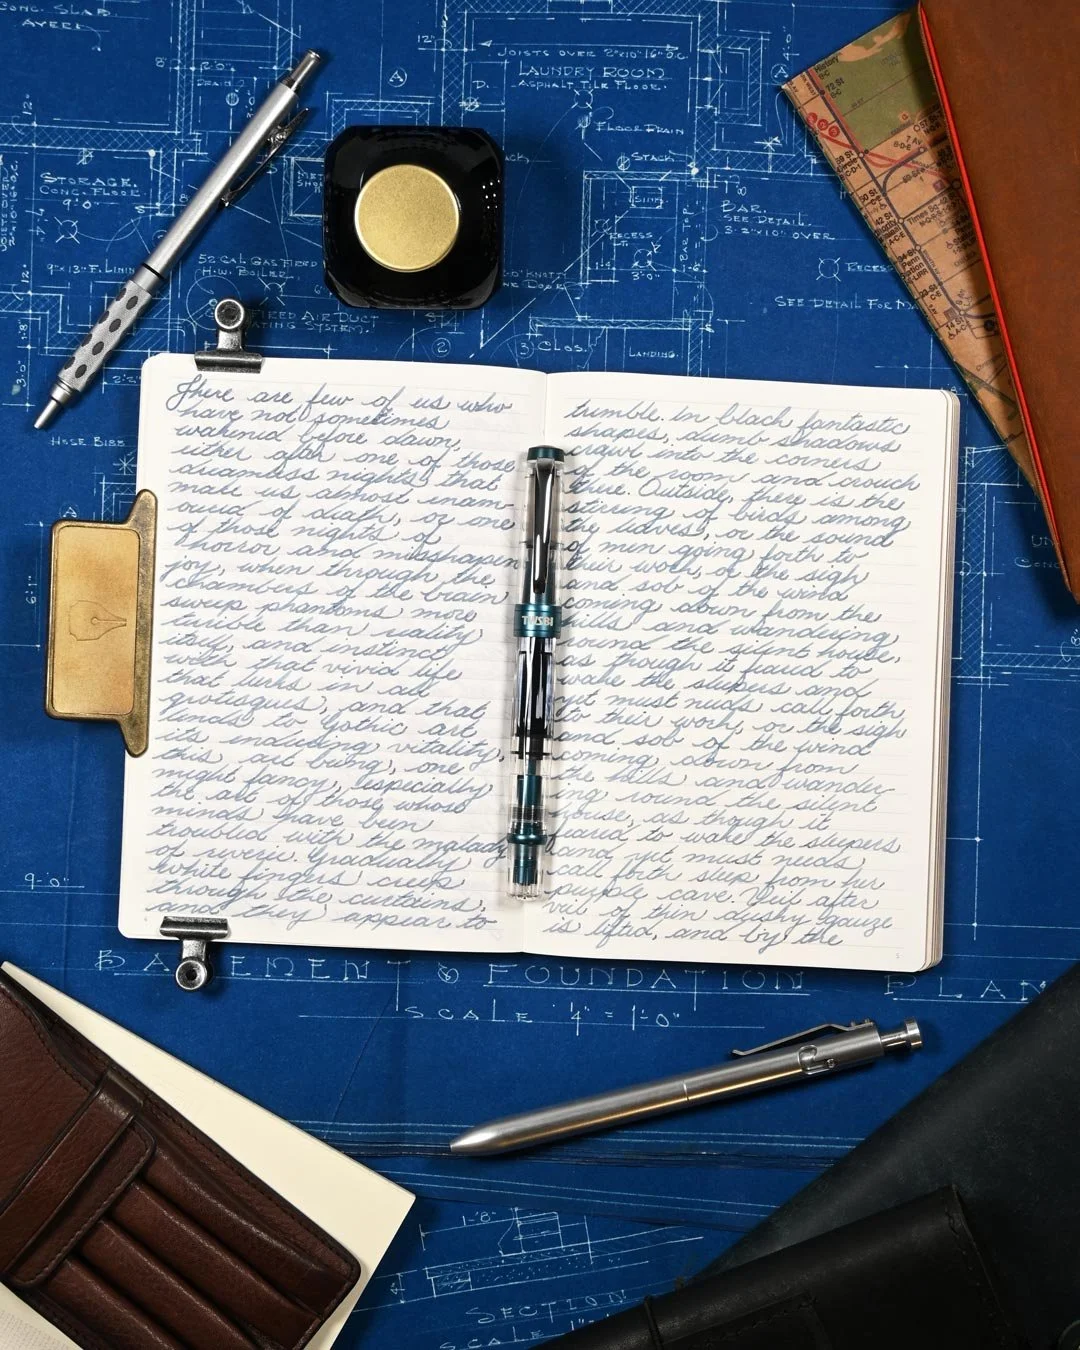 CONC. SLAB
JOISTS OVER 2"x10" 16" O.C.
LAUNDRY ROOM
ASPHALT TILE FLOOR.
FLOOR DRAIN
STACK
STORAGE.
CONC. FLOOR
9'-0"
BAR.
SEE DETAIL.
3-2"x10" OVER
RECESS
SEE DETAIL FOR
52 GAL GAS FIRED
H.W. BOILER
FIRED AIR DUCT
SYSTEM.
CLOS.
LANDING.
HOSE BIBB
There are few of us who
have not sometimes
wakened before dawn,
either after one of those
dreamless nights that
make us almost enam-
oured of death, or one
of those nights of
horror and misshapen
joy, when through the
chambers of the brain
sweep phantoms more
terrible than reality
itself, and instinct
with that vivid life
that lurks in all
grotesques, and that
lends to Gothic art
its enduring vitality,
this art being, one
might fancy, especially
the art of those whose
minds have been
troubled with the malady
of reverie. Gradually
white fingers creep
through the curtains,
and they appear to
tremble. In black fantastic
shapes, dumb shadows
crawl into the corners
of the room and crouch
there. Outside, there is the
stirring of birds among
the leaves, or the sound
of men going forth to
their work, or the sigh
and sob of the wind
coming down from the
hills and wandering
round the silent house,
as though it feared to
wake the sleepers and
yet must needs call forth
to their work, or the sigh
and sob of the wind
coming down from
the hills and wander-
ing round the silent
house, as though it
feared to wake the sleepers
and yet must needs
call forth sleep from her
purple cave. Veil after
veil of thin dusky gauze
is lifted, and by the
TWSBI
9'-0"
BASEMENT & FOUNDATION PLAN
SCALE 1/4" = 1'-0"
1'-8"
SECTION
SCALE